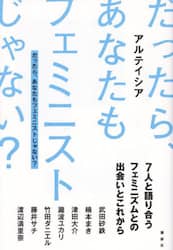 だったら、
あなたも
フェミニスト
じゃない?
アルテイシア
だったら、あなたもフェミニストじゃない?
7人と語り合う
フェミニズムとの
出会いとこれから
武田砂鉄
楠本まき
津田大介
瀧波ユカリ
竹田ダニエル
藤井サチ
渡辺満里奈